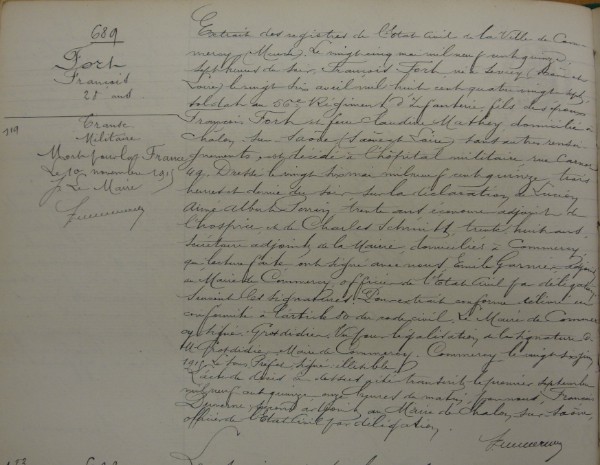 689
Fort
François
28 ans
719
Transc.
Militaire
Mort pour la France
Le 10 novembre 1915
p. Le Maire
Extrait des registres de l'Etat Civil de la Ville de Com-
mercy (Meuse). Le vingt cinq mai mil neuf cent quinze,
sept heures du soir, François Fort né à (Saône et
Loire) le vingt six avril mil huit cent quatre vingt sept
soldat au 56e Régiment d'Infanterie, fils de
François Fort et de feue Claudine Mathey, domicilié à
Chalon sur Saône (Saône et Loire), sans autres rensei-
gnements, est décédé à l'hôpital militaire rue Carnot
49. Dressé le vingt six mai mil neuf cent quinze, trois
heures et demie du soir sur la déclaration de Lucien
Aimé Albert Perrin, trente ans, économe adjoint de
l'hospice, et de Charles Schmitt, trente huit ans,
secrétaire adjoint de la Mairie, domiciliés à Commercy
qui, lecture faite ont signé avec nous, Emile Garnier, adjoint
au Maire de Commercy, officier de l'Etat Civil par délégation
Suivent les signatures. Pour extrait conforme délivré en
conformité à l'article 80 du code civil. Le Maire de Commer-
cy signé: Grosdidier. Vu pour légalisation de la signature de
M. Grosdidier Maire de Commercy. Commercy le vingt
1915. Le Sous Préfet, signé: illisible.
L'acte de décès ci-dessus a été transcrit le premier septembre
mil neuf cent quinze, heures du matin, par nous, François
adjoint au Maire de Chalon sur Saône,
officier de l'Etat Civil par délégation.